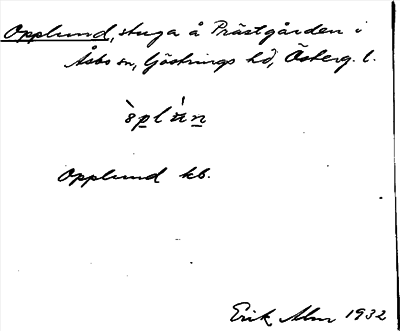 Opplund, stuga å Prästgården i
Åsbo sn, Göstrings hd, Österg. l.
Opplund kb.
Erik Alm 1932